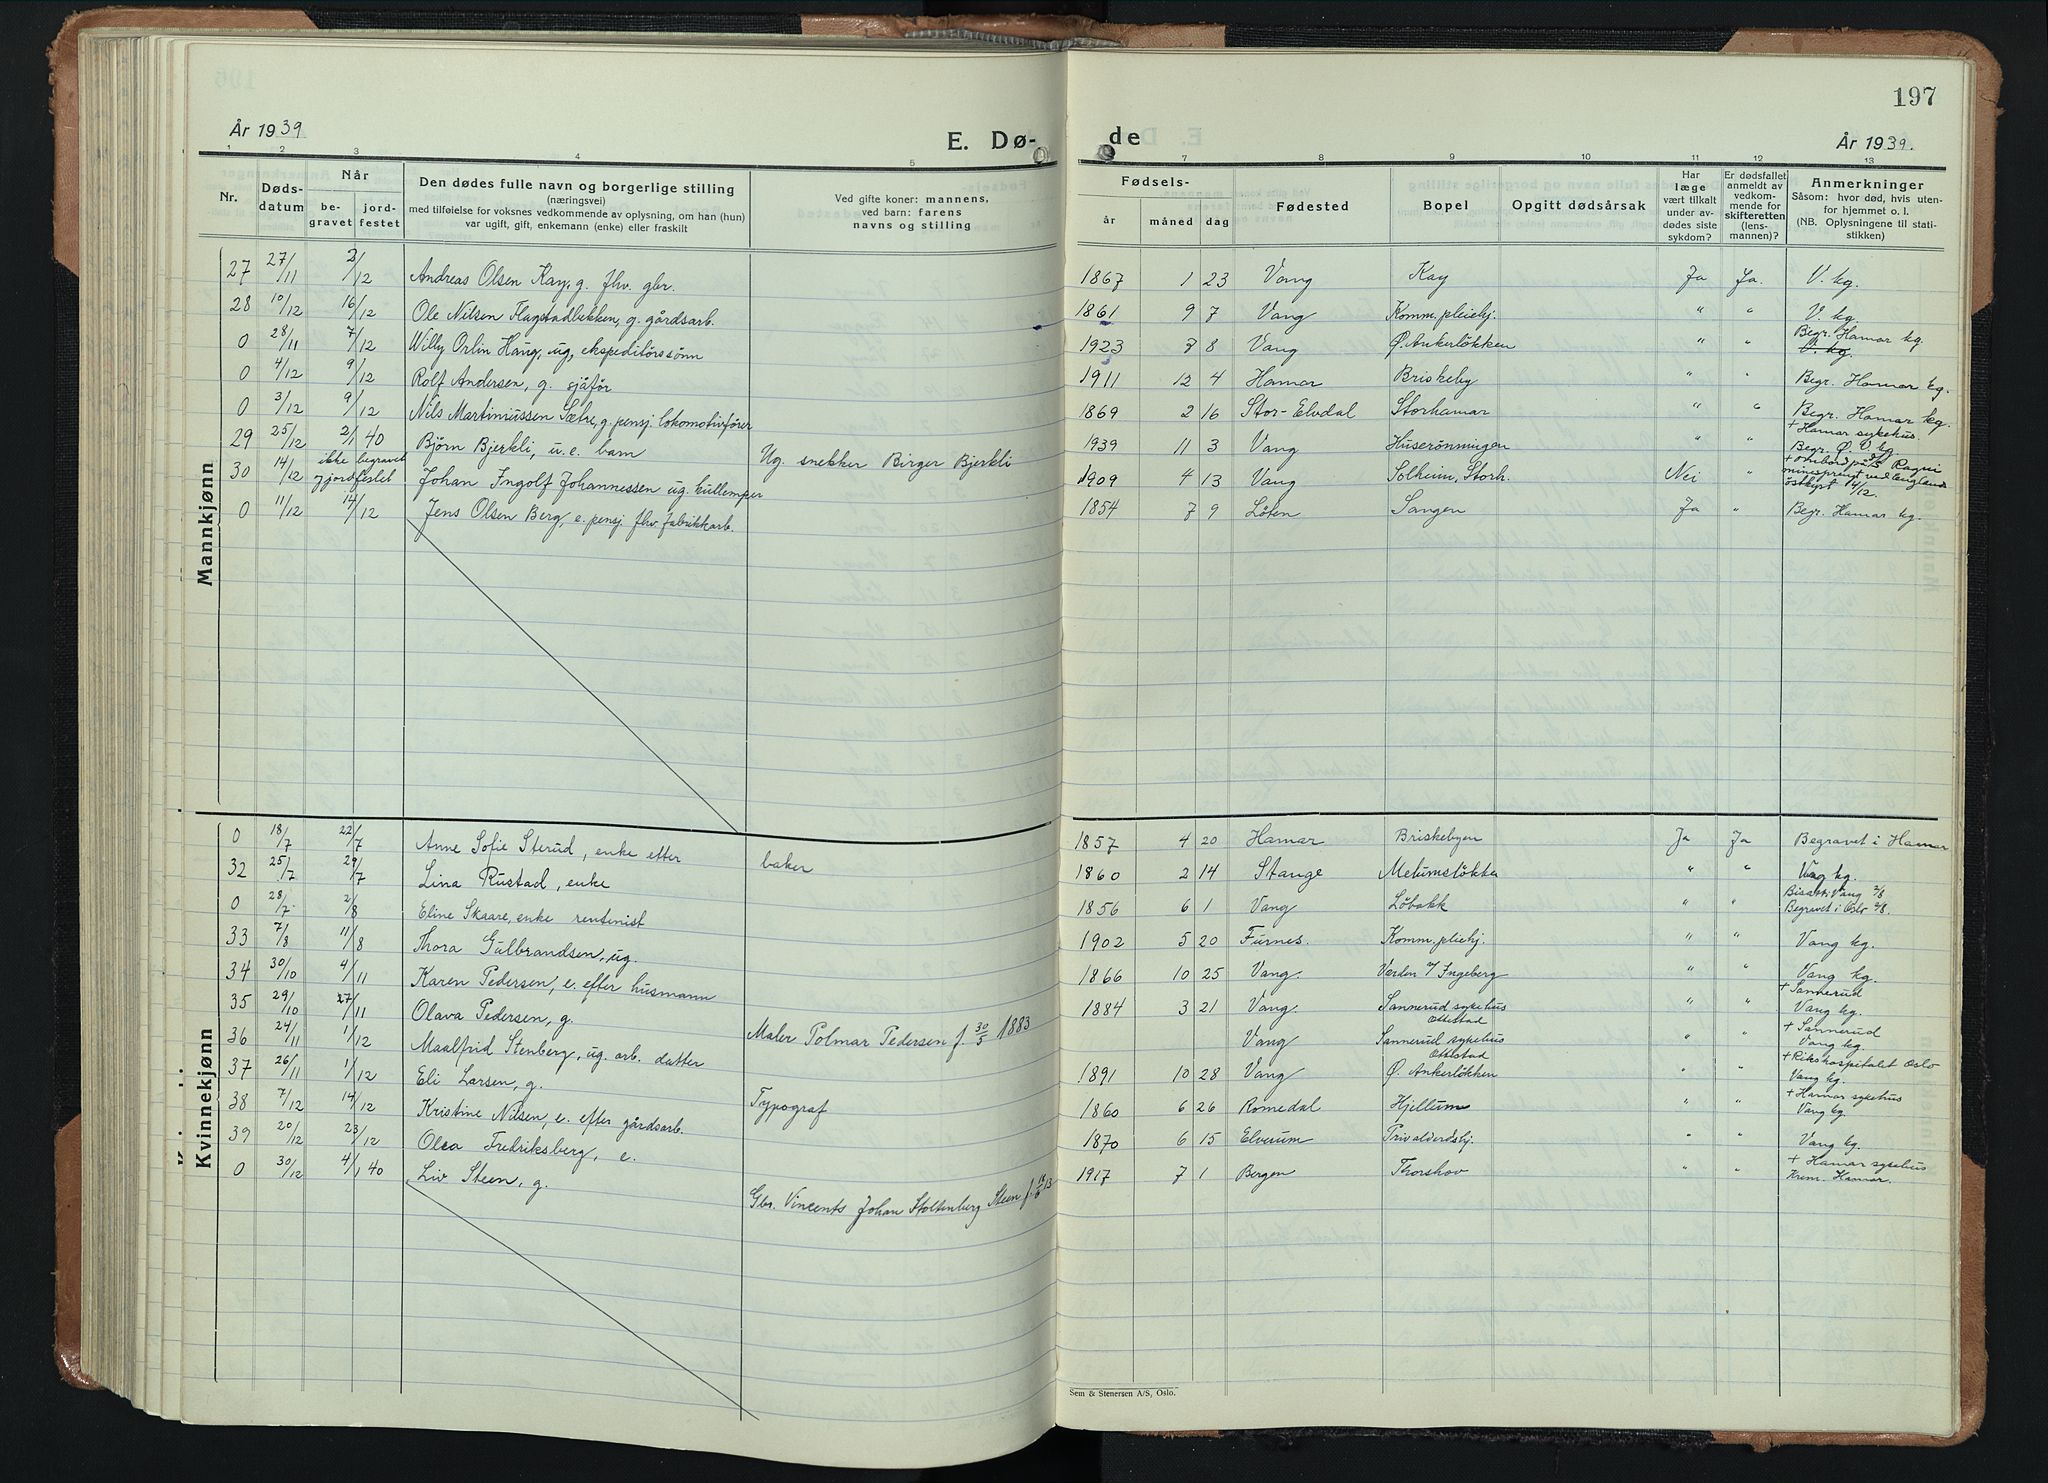 197
År 1939
E. Dø-
de
År 1939.
1 2 3 4 5 7 8 9 10 11 12 13
Nr.
Døds-
datum
Når
be-
gravet
jord-
festet
Den dødes fulle navn og borgerlige stilling
(næringsvei)
med tilføielse for voksnes vedkommende av oplysning, om han (hun)
var ugift, gift, enkemann (enke) eller fraskilt
Ved gifte koner: mannens,
ved barn: farens
navns og stilling
Fødsels-
år
måned
dag
Fødested
Bopel
Opgitt dødsårsak
Har
læge
vært tilkalt
under av-
dødes siste
sykdom?
Er dødsfallet
anmeldt av
vedkom-
mende for
skifteretten
(lens-
mannen)?
Anmerkninger
Såsom: hvor død, hvis uten-
for hjemmet o. l.
(NB. Oplysningene til stati-
stikken)
Mannkjønn
27 27/11 2/12 Andreas Olsen Kay, g. fhv. gbr. 1867 1 23 Vang Kay Ja Ja. V. kg.
28 10/12 16/12 Ole Nilsen Flagstadbekken, g. gårdsarb. 1861 9 7 Vang Komm. pleiehj. " " V. kg.
0 28/11 7/12 Willy Orlin Haug, ug, ekspeditørssønn 1923 7 8 Vang Ø. Ankerløkken " " Begr. Hamar kg.
V. kg.
0 4/12 9/12 Rolf Andersen, g. sjåfør 1911 12 4 Hamar Briskeby " " Begr. Hamar kg.
0 3/12 9/12 Nils Martiniussen Sætre, g. pensj. lokomotivfører 1869 2 16 Stor-Elvdal Storhamar " " Begr. Hamar kg.
+ Hamar sykehus.
29 25/12 2/1 40 Bjørn Bjerkli, u.e. barn Ug. snekker Birger Bjerkli 1939 11 3 Vang Huserønningen " " Begr. Ø. V. kg.
30 14/12 ikke begravet
jordfestet Johan Ingolf Johannessen ug. kullemper 1909 4 13 Vang Solheim, Storh. Nei " + ombord på S/S Ragni
minesprengt ved Englands
østkyst 14/12.
0 11/12 14/12 Jens Olsen Berg, e. pensj. fhv. fabrikkarb. 1854 7 9 Løten Sangen Ja " Begr. Hamar kg.
Kvinnekjønn
0 18/7 22/7 Anne Sofie Sterud, enke efter baker 1857 4 20 Hamar Briskebyen Ja Ja Begravet i Hamar
32 25/7 29/7 Lina Rustad, enke 1860 2 14 Stange Melumsløkka " " Vang kg.
0 28/7 2/8 Eline Skaare, enke rentenist 1856 6 1 Vang Løbakk " " Bisatt: Vang 2/8
Begravet i Oslo 2/8.
33 7/8 11/8 Thora Gulbrandsen, ug. 1902 5 20 Furnes. Komm. pleiehj. " " Vang kg.
34 30/10 4/11 Karen Pedersen, e. efter husmann 1866 10 25 Vang. Verden u/ Ingeberg " " Vang kg.
35 29/10 27/11 Olava Pedersen, g. Maler Polmar Pedersen f. 30/5 1883 1884 3 21 Vang. Sannerud sykehus
Ottestad " " + Sannerud
Vang kg.
36 24/11 1/12 Maalfrid Stenberg, ug. arb. datter Vang Sannerud sykehus
Ottestad " " + Sannerud
Vang kg.
37 26/11 1/12 Eli Larsen, g. Typograf 1891 10 28 Vang Ø. Ankerløkken " " + Rikshospitalet Oslo
Vang kg.
38 7/12 14/12 Kristine Nilsen, e. efter gårdsarb. 1860 6 26 Romedal Hjellum " " + Hamar sykehus
Vang kg.
39 20/12 23/12 Olea Fredriksberg, e. 1870 6 15 Elverum " " Vang kg.
0 30/12 4/1 40 Liv Steen, g. Gbr. Vincents Johan Stoltenberg Steen 1917 7 1 Bergen Thorshov " " + Hamar sykehus
Krem. Hamar.
Sem & Stenersen A/S, Oslo.